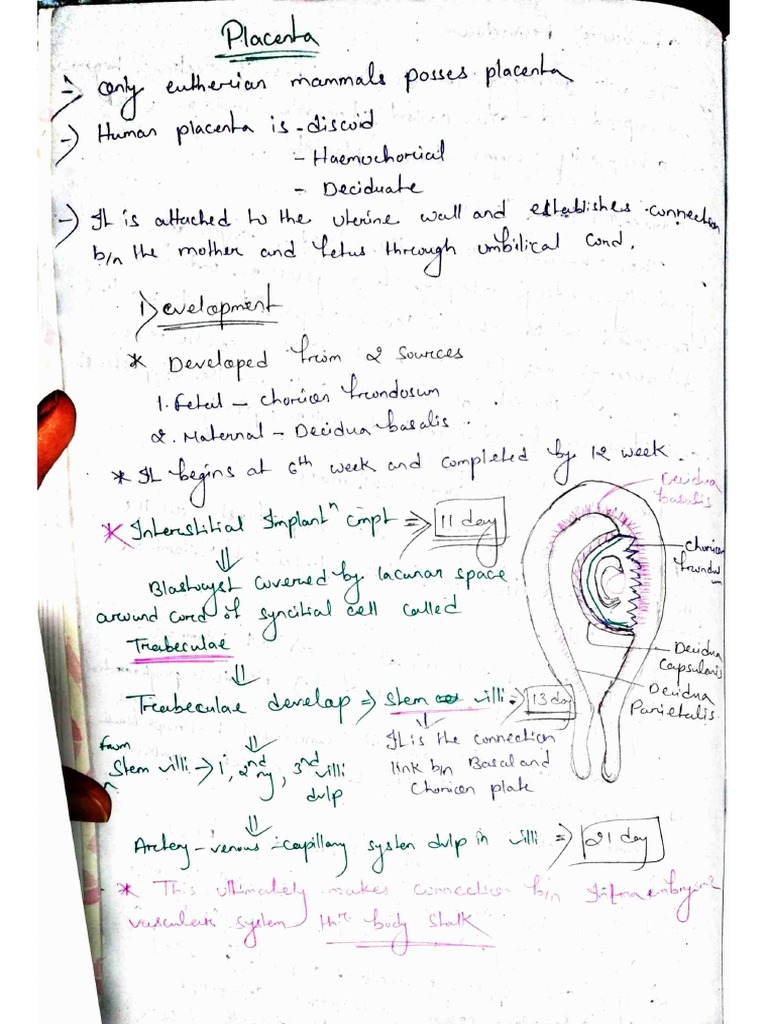 Placenta
-) only eutherian mammals posses placenta
-) Human placenta is - discoid
- Haemochorical
- Deciduate
-) It is attached to the uterine wall and establishes connection
b/n the mother and fetus through umbilical cord.
Development
* Developed from 2 sources
1. Fetal - chorion frondosum
2. Maternal - Decidua basalis.
* It begins at 6th week and completed by 12 week.
Decidua
basalis
* Interstitial Implantn cmpt => 11 day
Chorion
frondos
um
⇓
Blastocyst covered by lacunar space
around cord of syncitial cell called
Trabeculae
Decidua
Capsularis
⇓
Decidua
Parietalis
Trabeculae develop => Stem villi => 13 day
from ⇓ ⇓
Stem villi -> 1°, 2nd ry, 3rd villi
dvlp
It is the connection
link b/n Basal and
Chorion plate
⇓
Artery - venous - capillary system dvlp in villi => 21 day
* This ultimately makes connection b/n
vascular system thr body stalk